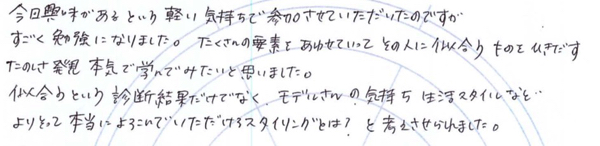 今日興味があるという軽い気持ちで参加させていただいたのですが
すごく勉強になりました。たくさんの要素をあわせていってその人に似合うものをひきだす
たのしさ発見 本気で学んでみたいと思いました。
似合うという診断結果だけでなく、モデルさんの気持ち 生活スタイルなど…
よりそって本当によろこんでいただけるスタイリングとは？と考えさせられました。